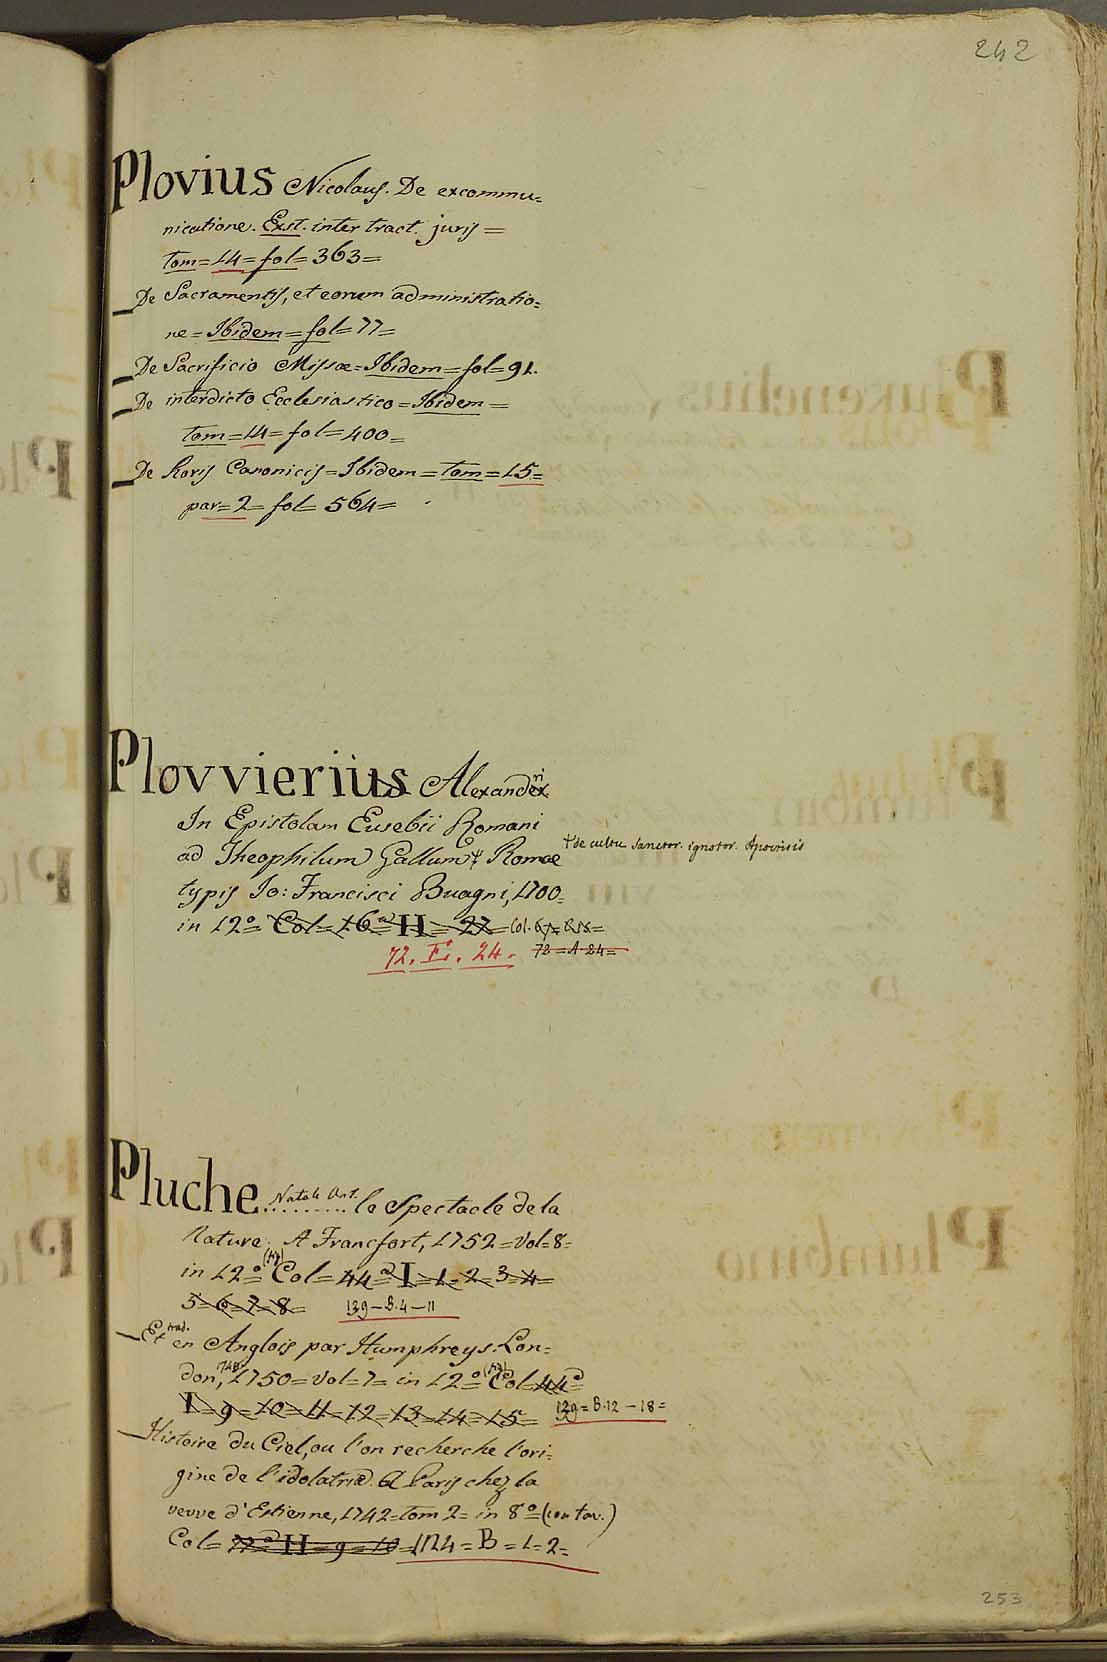 242
Plovius Nicolaus. De excommu=
nicatione. Exst. inter tract. juris =
tom = 14 = fol = 363 =
De Sacramentis, et eorum administratio=
ne = Ibidem = fol = 77 =
De Sacrificio Missæ = Ibidem = fol = 91.
De interdicto Ecclesiastico = Ibidem =
tom = 14 = fol = 400 =
De horis Canonicis = Ibidem = tom = 15 =
par = 2 = fol = 564 =
Plovvierius Alexandri
In Epistolam Eusebii Romani
ad Theophilum Gallum Romae
† de cultu Sanctor. ignotor. Apocrisis
typis Jo: Francisci Buagni, 1700 =
in 12º = Col = 16ª = II = 27 = Col.
72. E. 24. 72 = A 24 =
Pluche Natale Ant. le Spectacle de la
Nature. A Francfort, 1752 = Vol = 8 =
in 12º = (fig) Col = 44ª I = 1 = 2 = 3 = 4 =
5 = 6 = 7 = 8 = 139 – B. 4 – 11
Et trad. en Anglois par Humphreys. Lon=
don, 1750 = Vol = 7 = in 12º = (fig) Col = 44ª
I = 9 = 10 = 11 = 12 = 13 = 14 = 15 = 139 = B. 12 – 18 =
Histoire du Ciel, ou l'on recherche l'ori=
gine de l'idolatrie. A Paris chez la
veuve d'Estienne, 1742 = tom 2 = in 8º = (con tav.)
Col = 77ª = II = 9 = 10 = 124 = B = 1 = 2 =
253